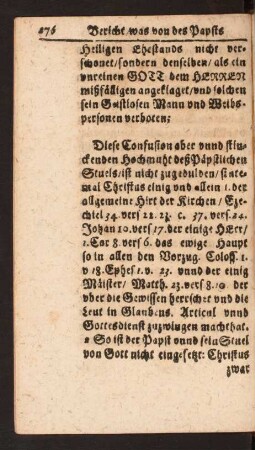 276 Bericht / was von des Papsts
Heiligen Ehestands nicht ver-
schonet / sondern denselben / als ein
vnreinen GOTT dem HERREN
mißfälligen angeklaget / vnd solchen
sein Geistlosen Mann vnd Weibs-
personen verboten;
Diese Confusion aber vnnd stin-
ckenden Hochmuht deß Päpstlichen
Stuels / ist nicht zugedulden / sinte-
mal Christus einig vnd allein 1. der
allgemeine Hirt der Kirchen / Eze-
chiel 34. vers 22. 23. c. 37. vers. 24.
Johan 10. vers 17. der einige Herr /
1. Cor 8. vers 6. das ewige Haupt
so in allen den Vorzug. Coloss. 1.
v 18. Ephes 1. v. 23. vnnd der einig
Mäister / Matth. 23. vers 8. 10 der
vber die Gewissen herrschet vnd die
Leut in Glaubens. Articul vnnd
Gottesdienst zuzwingen macht hat.
2 So ist der Papst vnnd sein Stuel
von Gott nicht eingesetzt: Christus
zwar